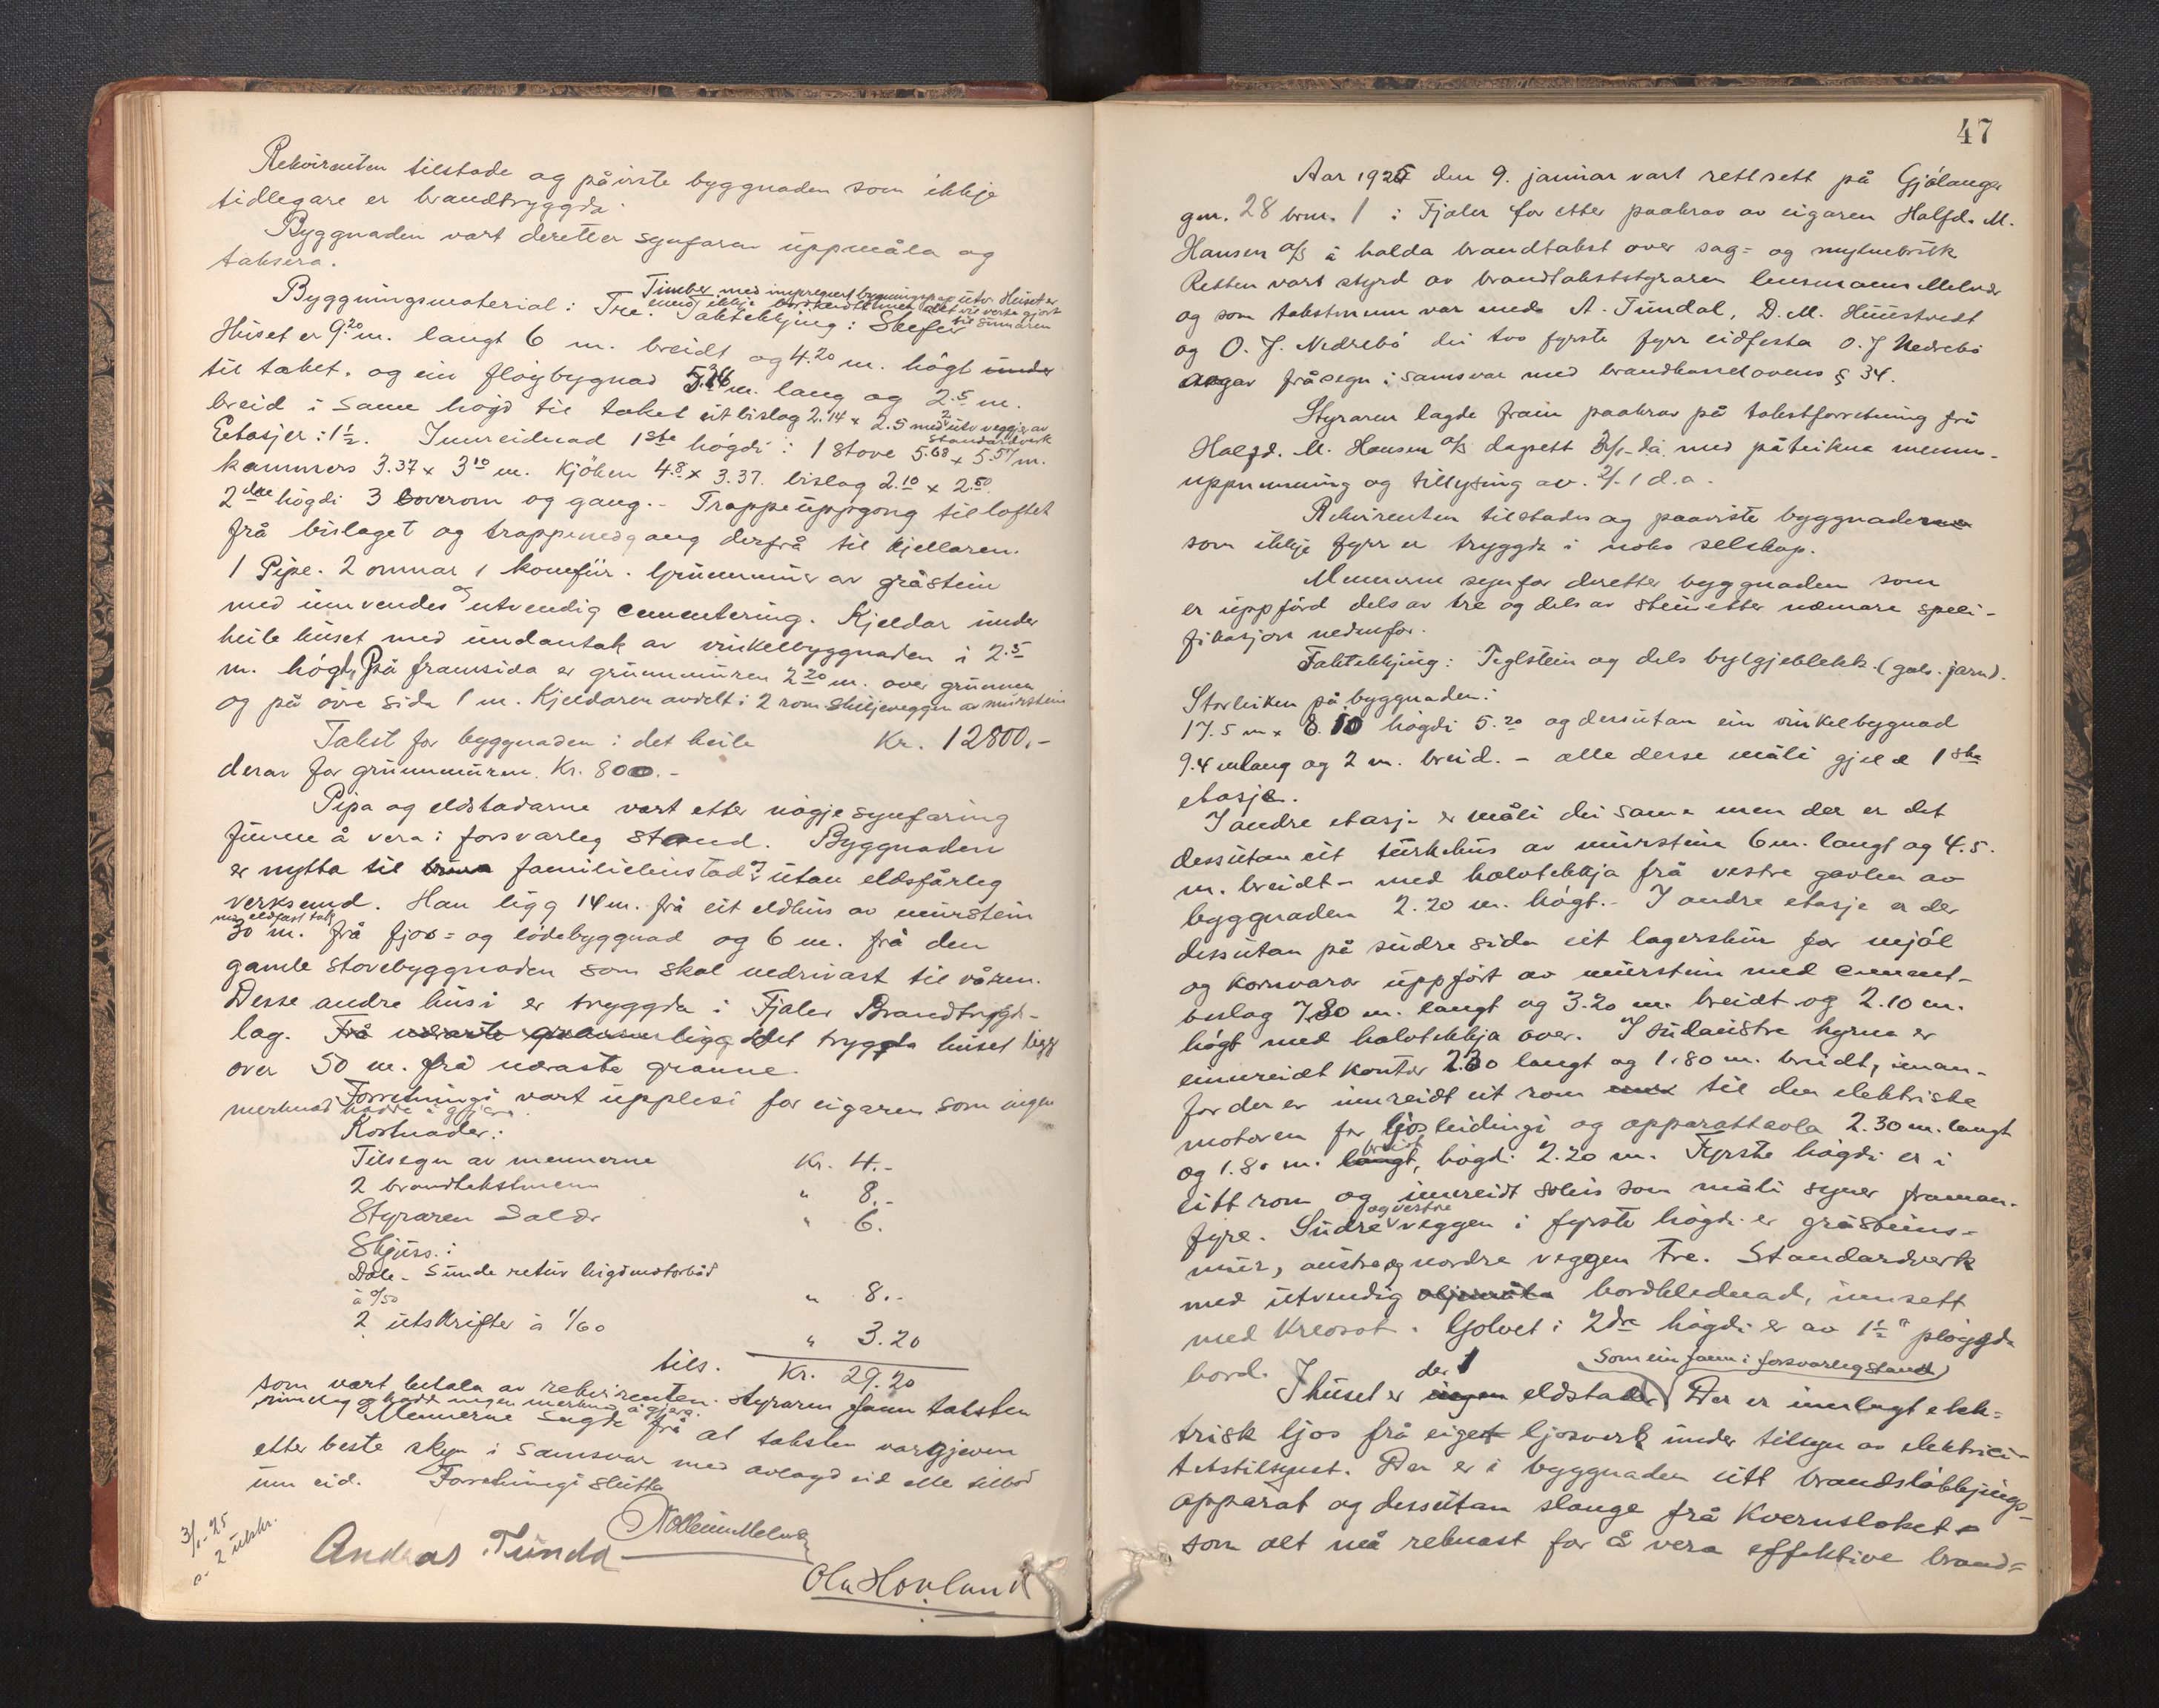 Rekvirenten tilstade og påviste byggnaden som ikkje
tidlegare er brandtryggda.
Byggnaden vart deretter synfaren uppmåla og
taksera.
Timber med impregnert bygningspap utv. Huset er
enno ikkje bordkledt men det vil verta gjort
til sumaren
Byggningsmaterial: Tre. Taktekkjing: Skefer
Huset er 9.20 m. langt 6 m. breidt og 4.20 m. högt under
til taket. og ein flöybygnad 5.36 m. lang og 2.5 m.
breid i same högd til taket eit bislag 2.14 x 2.5 med 2 utv veggjer av
standardverk
Eetasjer: 1½. Innreidnad 1ste högdi: 1 stove 5.68 x 5.57 m.
kammers 3.37 x 3.10 m. Kjöken 4.8 x 3.37. bislag 2.10 x 2.50.
2dre högdi 3 soverom og gang. - Trappeuppgong til loftet
frå bislaget og trappenedgang derfrå til kjellaren.
1 Pipe. 2 omnar 1 komfür. Grunnmur av gråstein
med innvendes og utvendig cementering. Kjeldar under
heile huset med undantak av vinkelbyggnaden i 2.5
m. högd. På framsida er grunnmuren 2.20 m. over grunnen
og på övre sida 1 m. Kjeldaren avdelt i 2 rom skiljeveggen av murstein
Takst for byggnaden i det heile Kr. 12800,-
derav for grunnmuren. Kr. 800.-
Pipa og eldstadarne vart etter nögje synfaring
funne å vera i forsvarleg stand. Byggnaden
er nytta til familiebustad utan eldsfårleg
verksemd. Han ligg 14 m. frå eit eldhus av murstein
med eldfast tak
30 m. frå fjos= og lödebyggnad og 6 m. frå den
gamle stovebyggnaden som skal nedrivast til våren.
Desse andre husi er tryggda i Fjaler Brandtrygd-
lag. Frå næraste grannar ligg det tryggda huset ligg
over 50 m. frå næraste granne.
Forretningi vart upplesi for eigaren som ingen
merknad hadde å gjera.
Kostnader:
Tilsegn av mennerne Kr. 4.-
2 brandtakstmenn " 8.-
Styraren Salær " 6.
Skjuss.:
Dale - Sunde retur leigdmotorbåd
à 0/50 " 8.-
2 utskrifter à 1/60 " 3.20
tils. Kr. 29.20
som vart betala av rekvirenten. Styraren fann taksten
rimeleg og hadde ingen merknad å gjera.
Mennerne sagde frå at taksten var gjeven
etter beste skyn i samsvar med avlagd eid elle tilbod
um eid. Forretningi slutta
3/1-25
a. 2 utskr.
Andreas Tundal
Ola Hovland
47
Aar 1925 den 9. januar vart rett sett på Gjölanger
gnr. 28 brn. 1 i Fjaler for etter paakrav av eigaren Halfd. M.
Hansen A/S å halda brandtakst over sag= og mylnebruk
Retten vart styrd av brandtakststyraren lensmann Melvær
og som takstmenn var med A. Tundal, D. M. Huustvedt
og O. J. Nedrebö dei tvo fyrste fyrr eidfesta O. J Nedrebö
avgav fråsegn i samsvar med brandkasselovens § 34.
Styraren lagde fram paakrav på takstforretning frå
Halfd. M. Hansen A/S dagsett 2/1 d.a. med påteikna menn-
uppnemning og tillysing av. 2/1 d.a.
Rekvirenten tilstades og paaviste byggnaderne
som ikkje fyrr er tryggda i noko selskap.
Mennerne synfor deretter byggnaden som
er uppförd dels av tre og dels av stein etter næmare spesi-
fikasjon nedenfor.
Taktekkjing: Teglstein og dels bylgjeblekk (galv. jarn).
Storleiken på byggnaden:
17.5 m x 8.10 högdi 5.20 og dessutan ein vinkelbygnad
9.4 m lang og 2 m. breid. - alle desse måli gjeld 1ste
etasje.
I andre etasje er måli dei same men der er det
dessutan eit turkehus av murstein 6 m. langt og 4.5.
m. breidt - med halvtekkja frå vestre gavlen av
byggnaden 2.20 m. högt. - I andre etasje er der
dessutan på südre sida eit lagerskur for mjöl
og kornvaror uppfört av murstein med cement-
beslag 7.80 m. langt og 3.20 m. breidt og 2.10 m.
högt med halvtekkja over. I südaustre hyrna er
innreidt kontor 2.30 langt og 1.80 m. breidt, innan-
for der er innreidt eit rom til den elektriske
motoren for ljosleidingi og apparattavla 2.30 m. langt
og 1.80 m. langt breidt, högdi 2.20 m. Fyrste högdi er i
eitt rom og innreidt som måli syner framan-
fyre. Südre og vestre veggen i fyrste högdi er gråsteins-
mur, austre og nordre veggen tre. Standardverk
med utvendig bordklednad, innsett
med kreosot. Golvet i 2dre högdi er av 1½" plögde
bord.
I huset er ingen der 1 eldstad (som ein fann i forsvarleg stand) Der er innlagt elek-
trisk ljos frå eiget ljosverk under tilsyn av elektrici-
tetstilsynet. Der er i byggnaden eitt brandslökkjings-
apparat og dessutan slange frå Kvernsloket
som alt må reknast for å vera effektive brand=